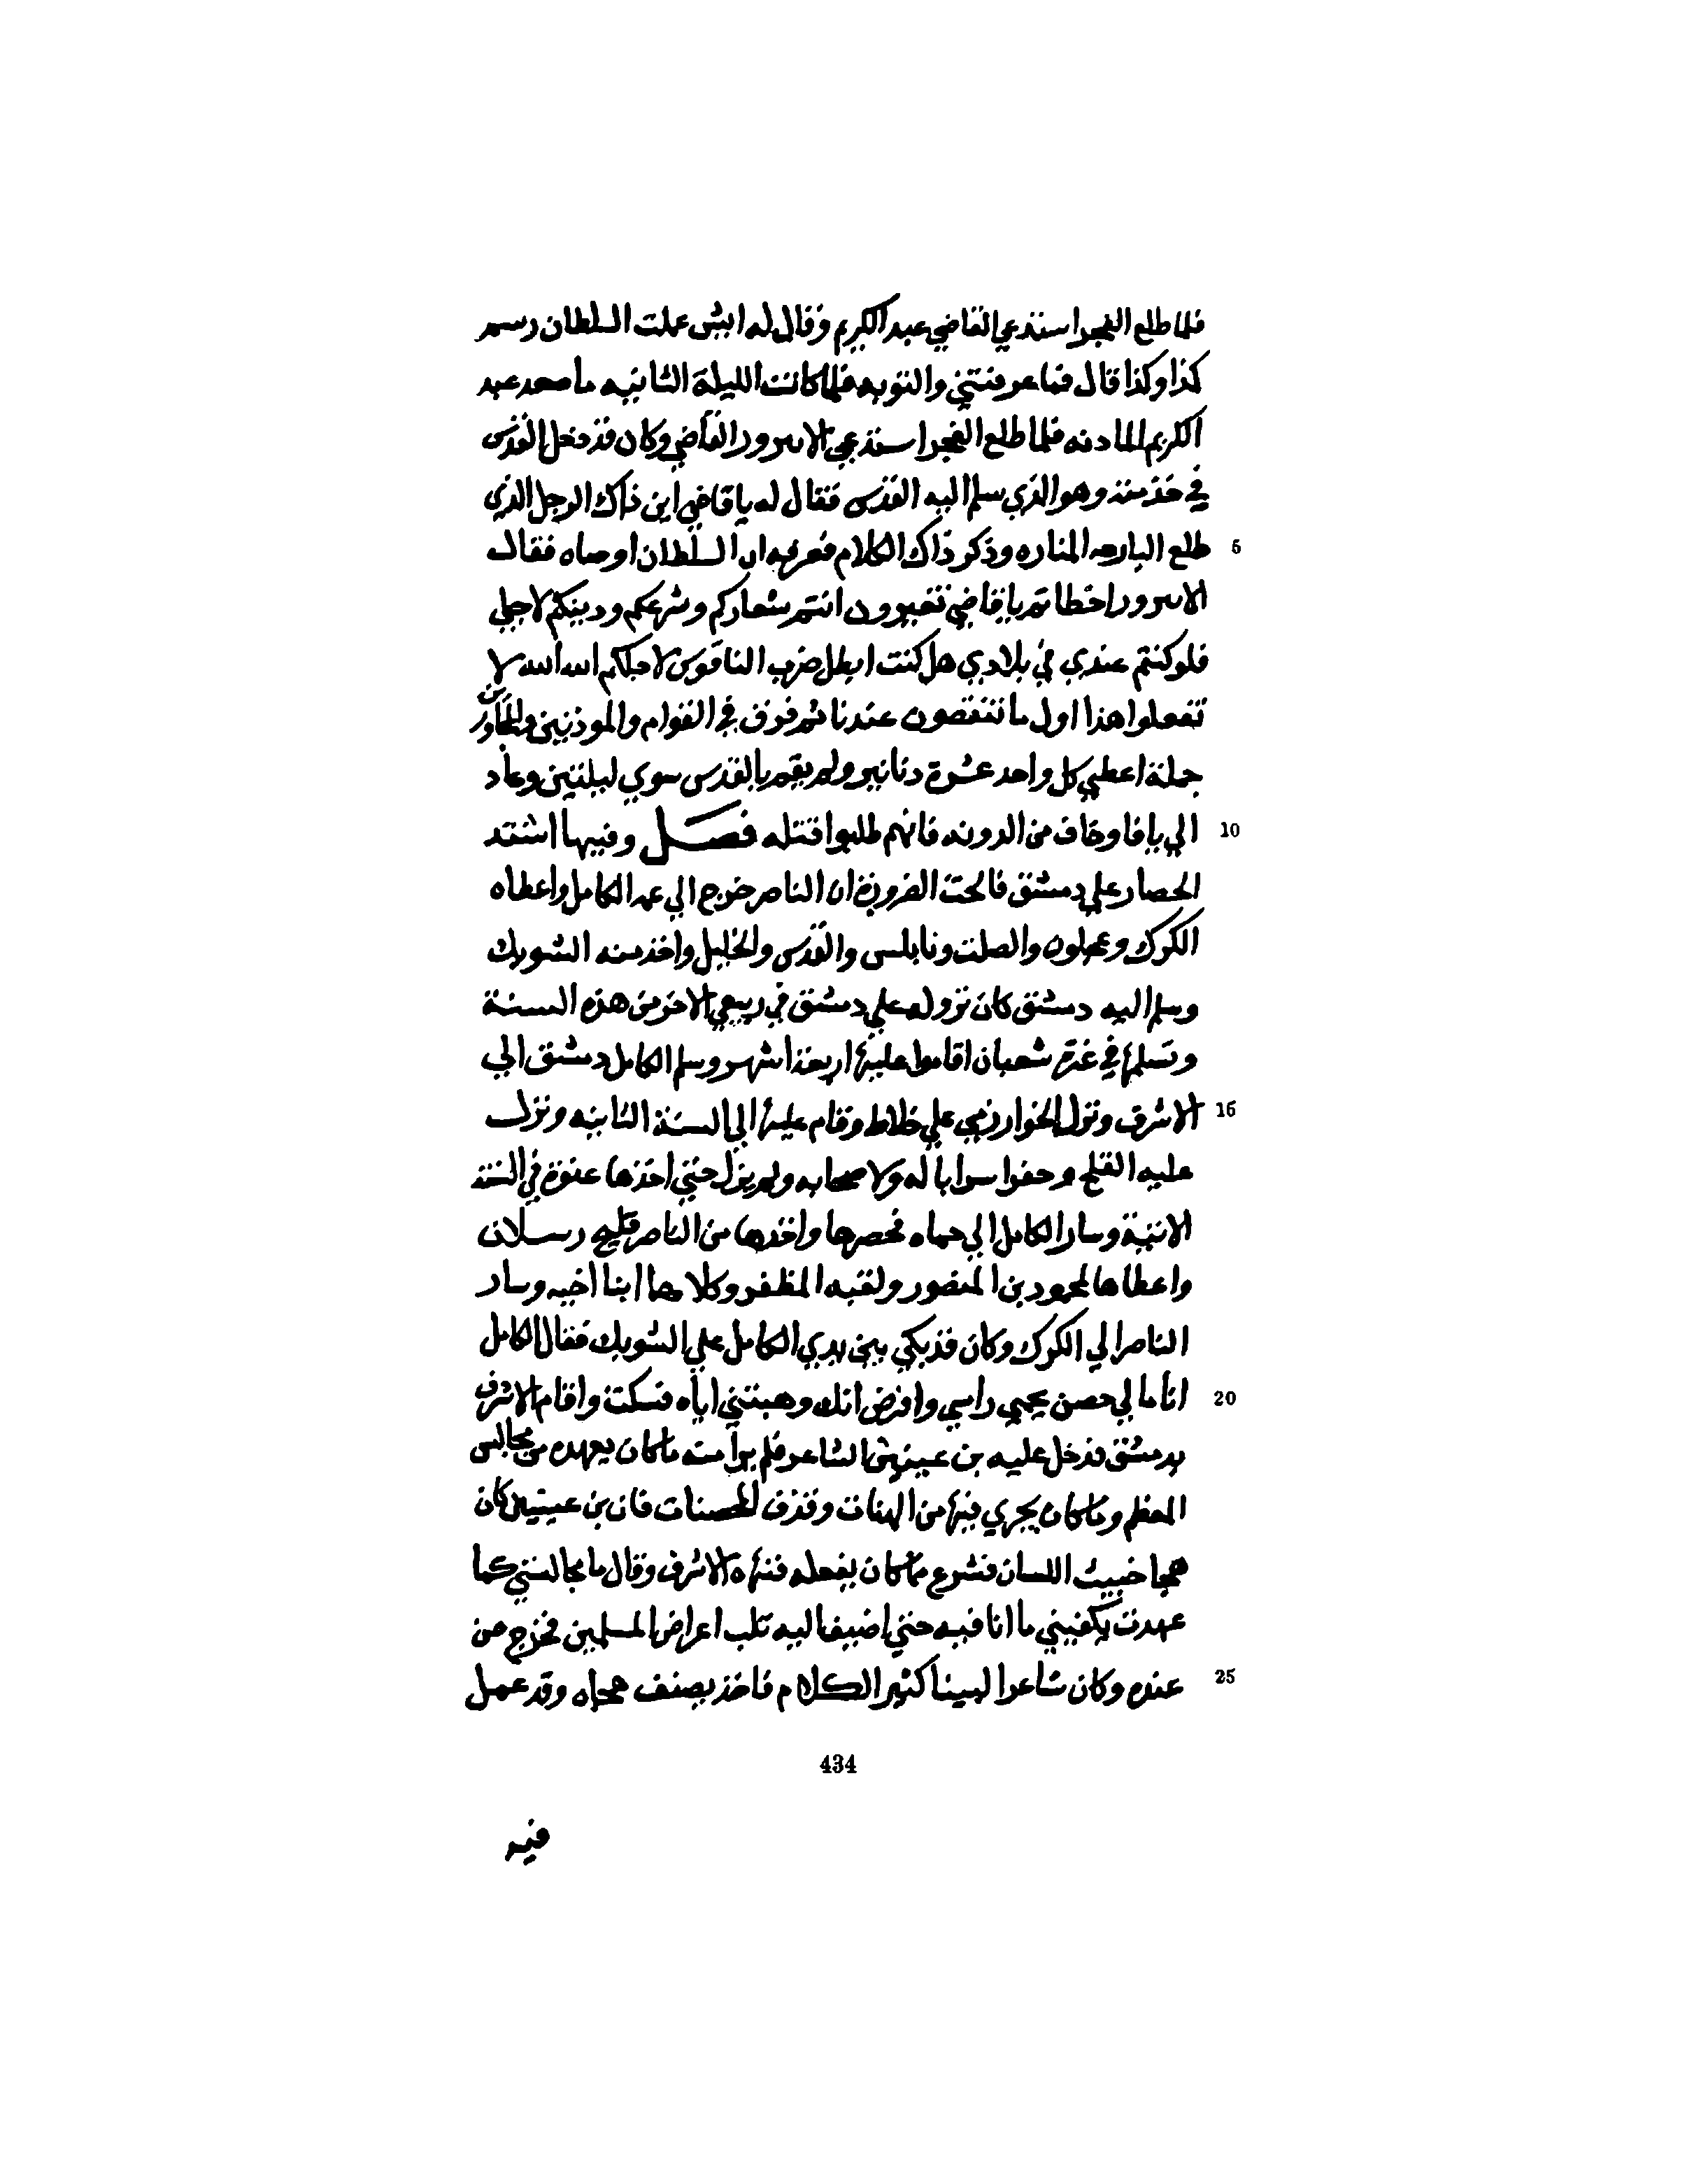 فلما طلع الفجر استدعي القاضي عبد الكريم وقال له ايش عملت السلطان رسم
كذا وكذا قال فما عرفتني والتوبه فلما كانت الليلة الثانيه ما صعد عبد
الكريم المادنه فلما طلع الفجر استدعي الانبرور القاضي وكان قد دخل القدس
في خدمته وهو الذي سلم اليه القدس فقال له يا قاضي اين ذاك الرجل الذي
5 طلع البارحه المناره وذكر ذاك الكلام فعرفه ان السلطان اوصاه فقال
الانبرور اخطاتم يا قاضي تغيرون انتم شعاركم وشرعكم ودينكم لاجلي
فلو كنتم عندي في بلادي هل كنت ابطل ضرب الناقوس لاجلكم الله الله لا
تفعلوا هذا اول ما تنتقصون عندنا ثم فرق في القوام والموذنين والمجاورين
جملة اعطي كل واحد عشرة دنانير ولم يقم بالقدس سوي ليلتين وعاد
10 الي يافا وخاف من الدونه فانهم طلبوا قتله فصل وفيها اشتد
الحصار علي دمشق فالحت الضرورة ان الناصر خرج الي عمه الكامل واعطاه
الكرك وعجلون والصلت ونابلس والقدس والخليل واخذ منه الشوبك
وسلم اليه دمشق كان نزوله علي دمشق في ربيع الاخر من هذه السنة
وتسلمها في غرة شعبان اقاموا عليها اربعة اشهر وسلم الكامل دمشق الي
15 الاشرف ونزل الخوارزمي علي خلاط وقام عليها الي السنة الثانيه ونزل
عليه الثلج وحفروا سرابا له ولاصحابه ولم يزل حتي اخذها عنوة في السنة
الاتية وسار الكامل الي حماه فحصرها واخذها من الناصر قليج رسلان
واعطاها لمحمود بن المنصور ولقبه المظفر وكلاهما ابنا اخيه وسار
الناصر الي الكرك وكان قد بكي بين يدي الكامل علي الشوبك فقال الكامل
20 انا ما لي حصن يحمي راسي وافرض انك وهبتني اياه فسكت واقام الاشرف
بدمشق فدخل عليه بن عينين الشاعر فلم ير منه ما كان يعهده من مجالس
المعظم وما كان يجري فيها من الهنات وقذف المحصنات فان بن عينين كان
هجا خبيث اللسان فشرع مما كان يفعله فنهاه الاشرف وقال ما مجالستي كما
عهدت يكفيني ما انا فيه حتي اضيف اليه ثلب اعراض المسلمين فخرج من
25 عنده وكان شاعرا لسنا كثير الكلام فاخذ يصنف هجاه وقد عمل
434
فيه